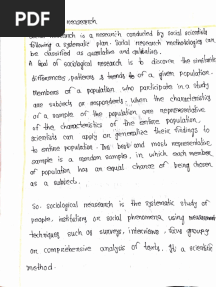 PDF
research
Social research is a research conducted by social scientists
following a systematic plan. Social research methodologies can
be classified as quantitative and qualitative.
A goal of sociological research is to discover the similarities
differences, patterns & trends of a given population.
Members of a population who participate in a study
are subjects or respondents. When the characteristics
of a sample of the population are representative
of the characteristics of the entire population,
scientists can apply or generalize their findings to
to entire population. The best and most representative
sample is a random sample, in which each member
of population has an equal chance of being chosen
as a subject.
So sociological research is the systematic study of
people, institutions or social phenomena, using
techniques such as surveys, interviews, focus groups
or comprehensive analysis of texts. It a scientific
method.